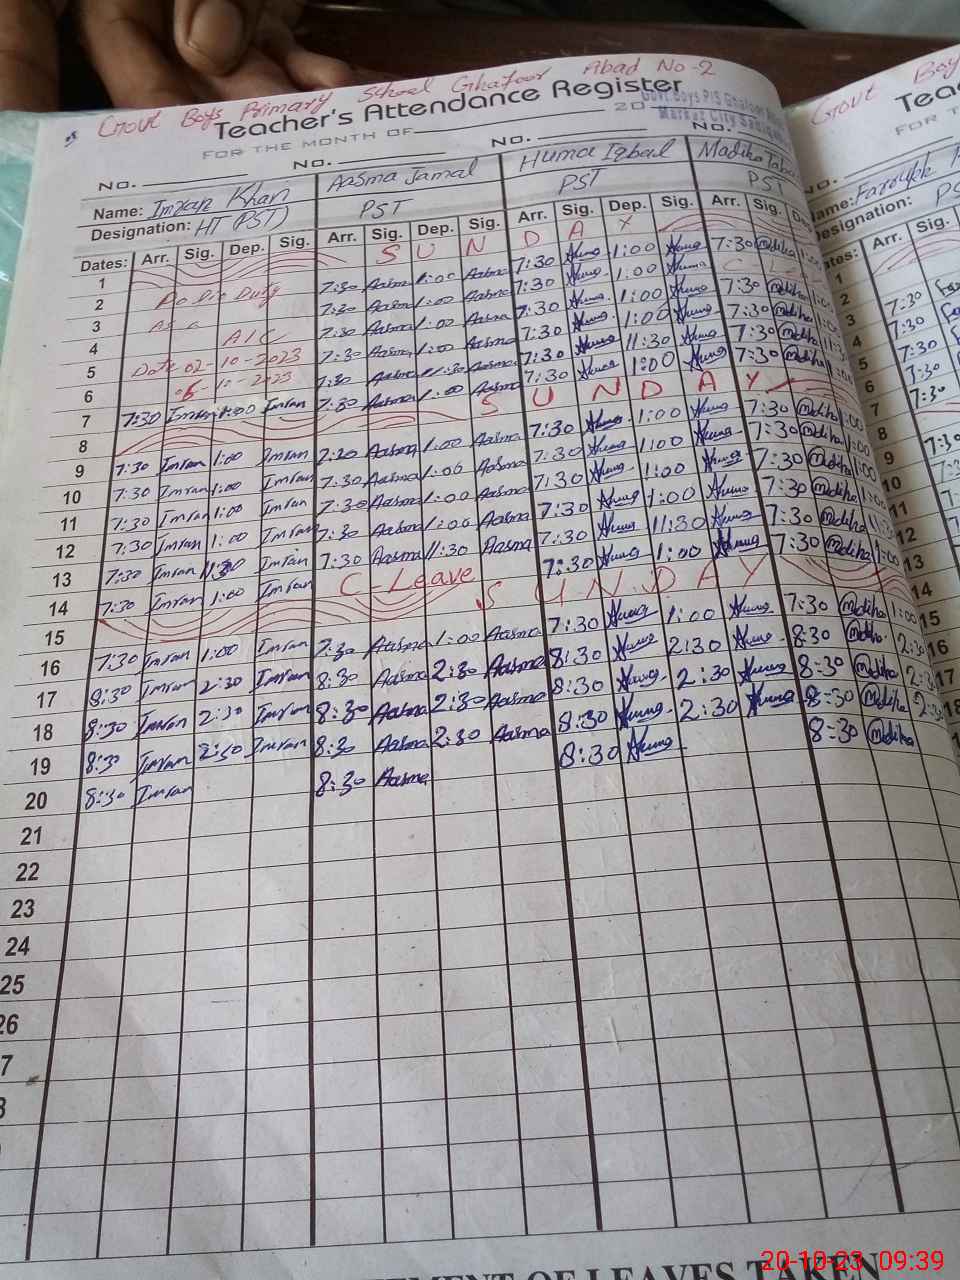 Govt Boys Primary School Ghafoor Abad No-2
Teacher's Attendance Register
FOR THE MONTH OF 20
No. No. No. No.
Name: Imran Khan Aasma Jamal Huma Iqbal Madiha
Designation: HT (PST) PST PST PST
Dates: Arr. Sig. Dep. Sig. Arr. Sig. Dep. Sig. Arr. Sig. Dep. Sig. Arr. Sig.
1 S U N D A Y
2 7:30 Aasma 1:00 Aasma 7:30 Huma 1:00 Huma 7:30 Madiha
3 7:30 Aasma 1:00 Aasma 7:30 Huma 1:00 Huma C L
4 A/C 7:30 Aasma 1:00 Aasma 7:30 Huma 1:00 Huma 7:30 Madiha
5 Date 02-10-2023 7:30 Aasma 1:00 Aasma 7:30 Huma 1:00 Huma 7:30 Madiha
6 7:30 Aasma 11:30 Aasma 7:30 Huma 11:30 Huma 7:30 Madiha
7 7:30 Imran 1:00 Imran 7:30 Aasma 1:00 Aasma 7:30 Huma 1:00 Huma 7:30 Madiha
8 S U N D A Y
9 7:30 Imran 1:00 Imran 7:30 Aasma 1:00 Aasma 7:30 Huma 1:00 Huma 7:30 Madiha 1:00
10 7:30 Imran 1:00 Imran 7:30 Aasma 1:00 Aasma 7:30 Huma 1:00 Huma 7:30 Madiha 1:00
11 7:30 Imran 1:00 Imran 7:30 Aasma 1:00 Aasma 7:30 Huma 1:00 Huma 7:30 Madiha 1:00
12 7:30 Imran 1:00 Imran 7:30 Aasma 1:00 Aasma 7:30 Huma 1:00 Huma 7:30 Madiha
13 7:30 Imran 11:30 Imran 7:30 Aasma 11:30 Aasma 7:30 Huma 11:30 Huma 7:30 Madiha
14 7:30 Imran 1:00 Imran C Leave 7:30 Huma 1:00 Huma 7:30 Madiha 1:00
15 S U N D A Y
16 7:30 Imran 1:00 Imran 7:30 Aasma 1:00 Aasma 7:30 Huma 1:00 Huma 7:30 Madiha 1:00
17 8:30 Imran 2:30 Imran 8:30 Aasma 2:30 Aasma 8:30 Huma 2:30 Huma 8:30 Madiha 2:30
18 8:30 Imran 2:30 Imran 8:30 Aasma 2:30 Aasma 8:30 Huma 2:30 Huma 8:30 Madiha
19 8:30 Imran 2:30 Imran 8:30 Aasma 2:30 Aasma 8:30 Huma 2:30 Huma 8:30 Madiha
20 8:30 Imran 8:30 Aasma 8:30 Huma 8:30 Madiha
21
22
23
24
25
26
OF LEAVES TAKEN
20-10-23 09:39
Govt Boys
Name: Farouk
Designation:
Arr. Sig.
1
2 7:30
3 7:30
4 7:30
5 7:30
6 7:30
7
8 7:30
9
10
11
12
13
14
15
16
17
18